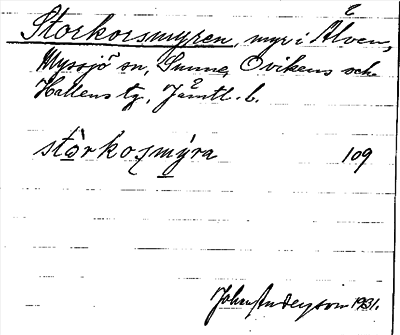 Storkorsmyren, myr i Ålven,
Myssjö sn, Sunne, Ovikens och
Hallens tg, Jämtl. l.
stòrkoṣmýra 109
John Andersson 1931.